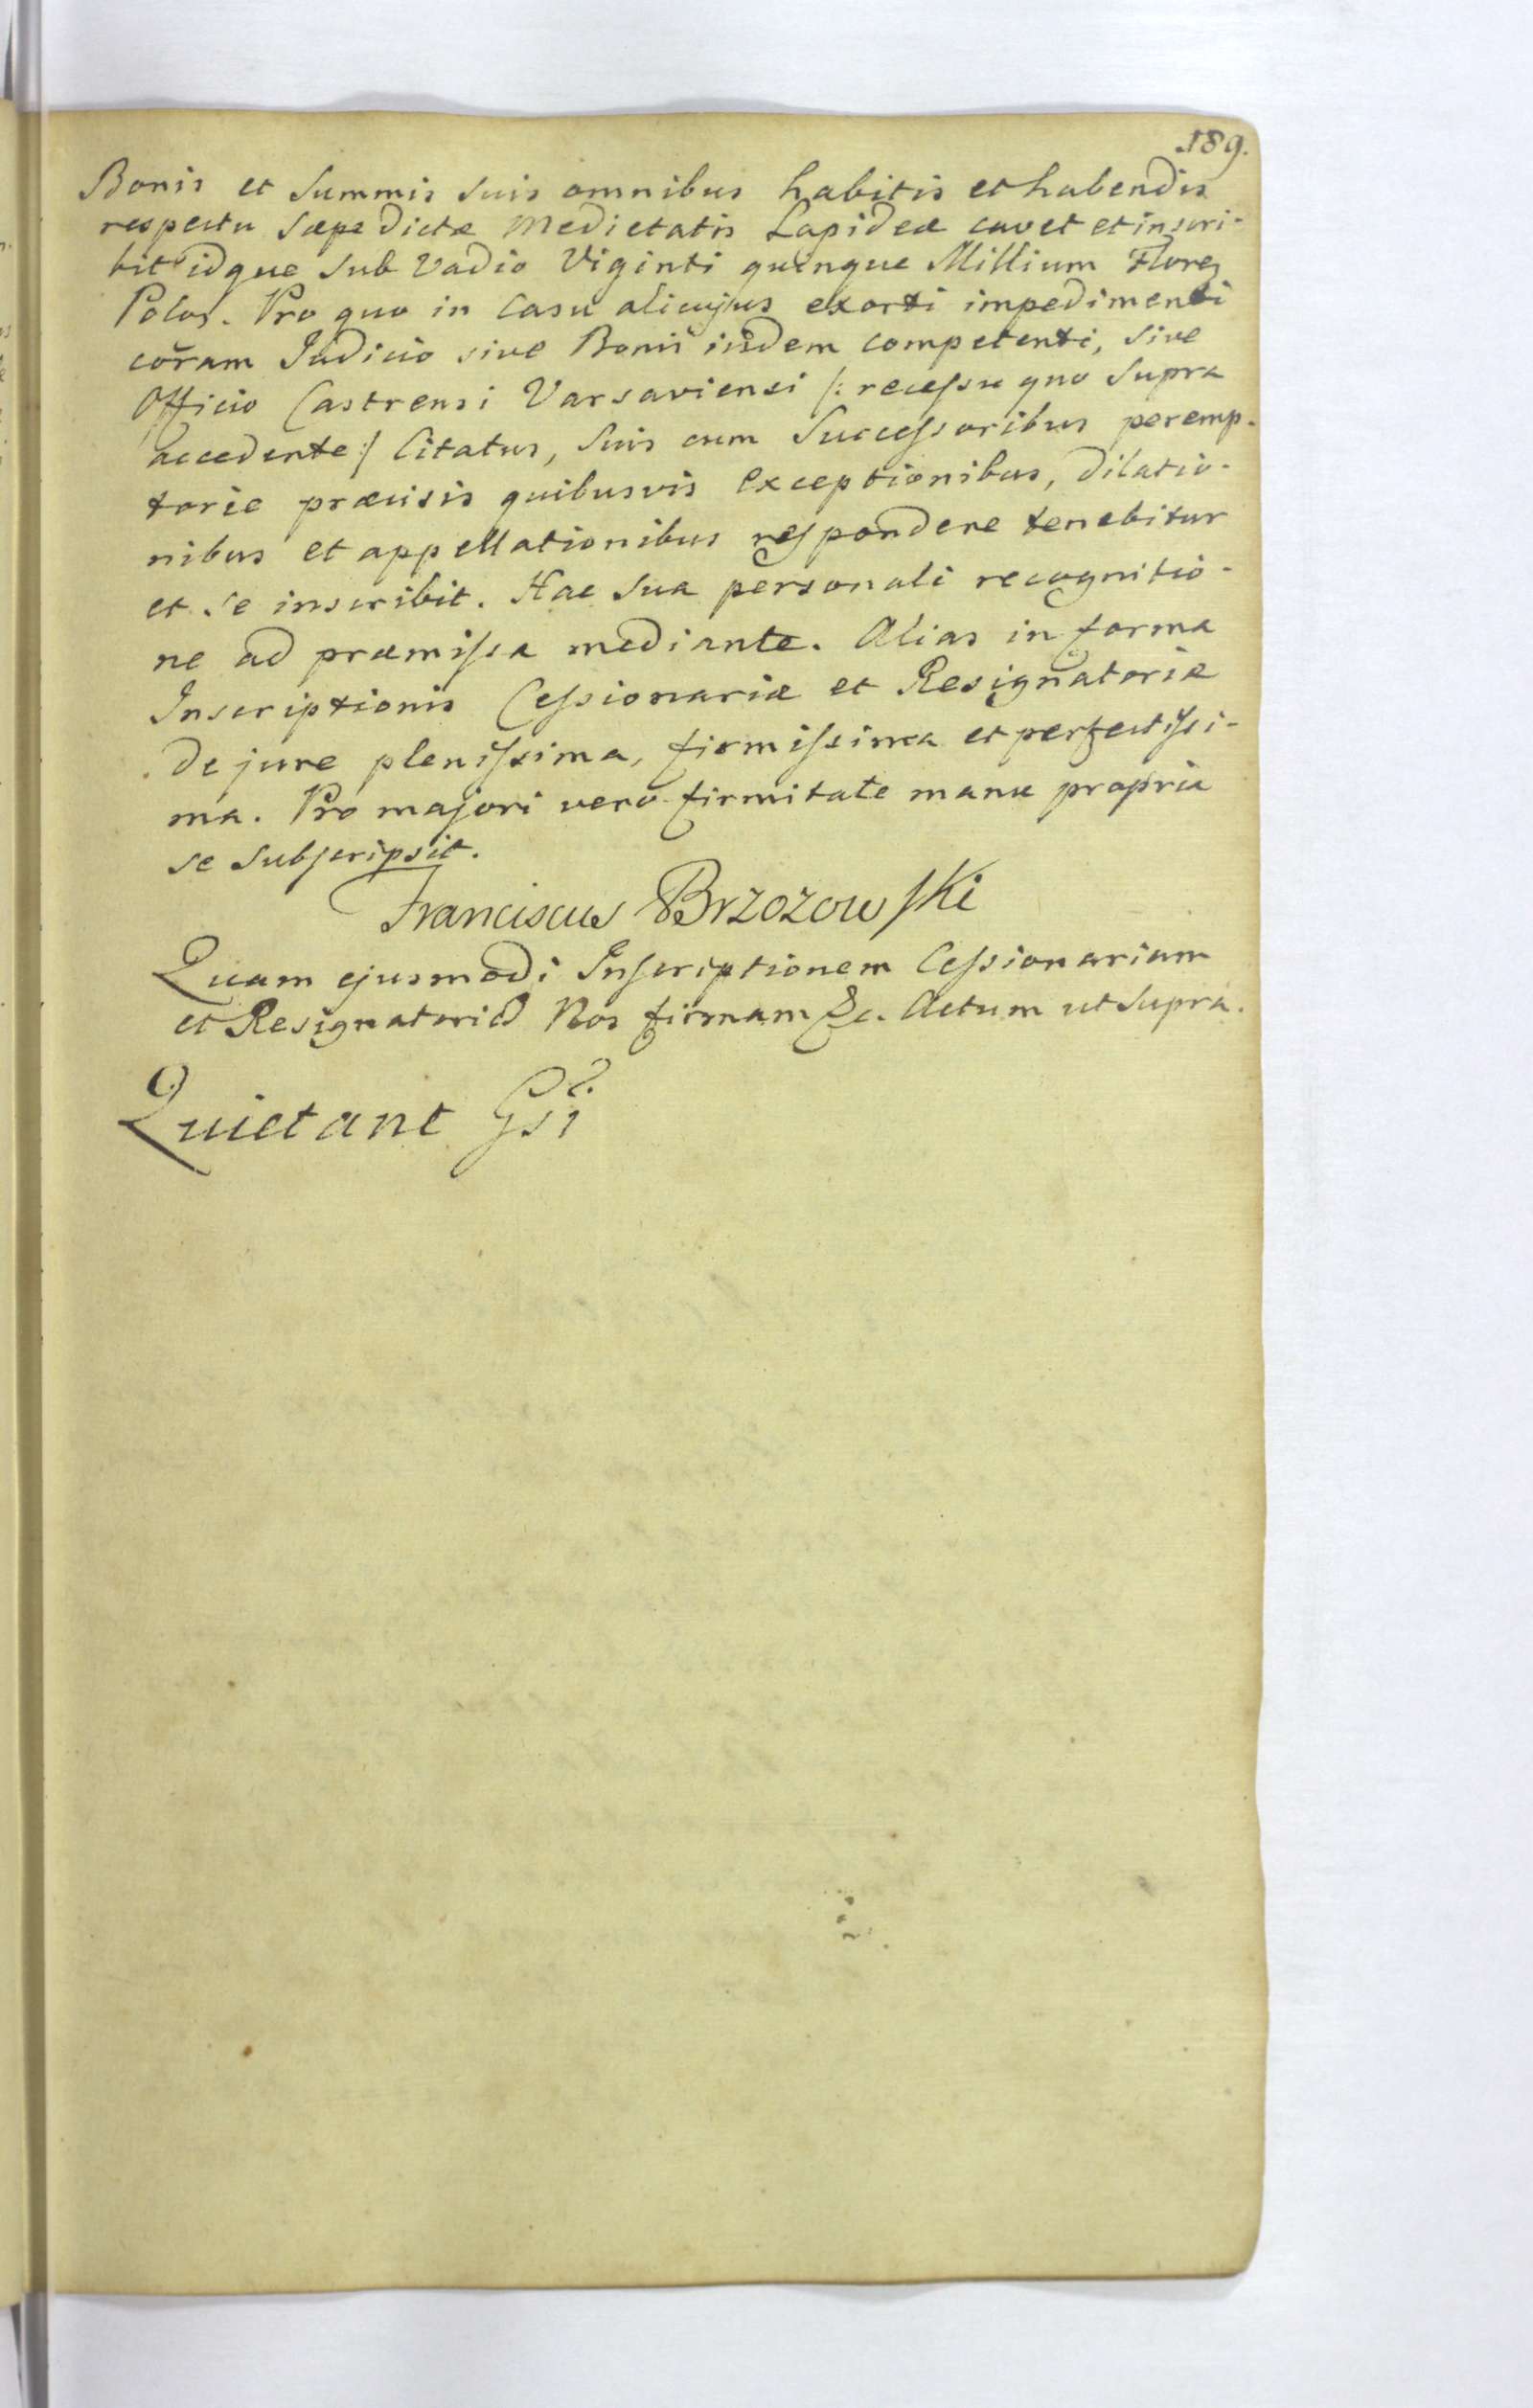 189.
Bonis et Summis suis omnibus habitis et habendis
respectu Sæpe dictæ Medietatis Lapideæ cavet et inscri-
bit idque sub Vadio Viginti quinque Millium Floren
Polos. Pro quo in Casu alicujus exorti impedimenti
coram Judicio sive Bonis iisdem competenti, sive
Officio Castrensi Varsaviensi /: recessu quo supra
accedente :/ Citatus, Suis cum Successoribus peremp-
torie præcisis quibusvis exceptionibus, dilatio-
nibus et appellationibus respondere tenebitur
et se inscribit. Hac Sua personali recognitio-
ne ad præmissa mediante. Alias in forma
Inscriptionis Cessionariæ et Resignatoriæ
de jure plenissima, firmissima et perfectissi-
ma. Pro majori vero firmitate manu propria
se subscripsit.
Franciscus Brzozowski
Quam ejusmodi Inscriptionem Cessionariam
et Resignatoria Nos firmam &c. Actum ut Supra.
Quietant